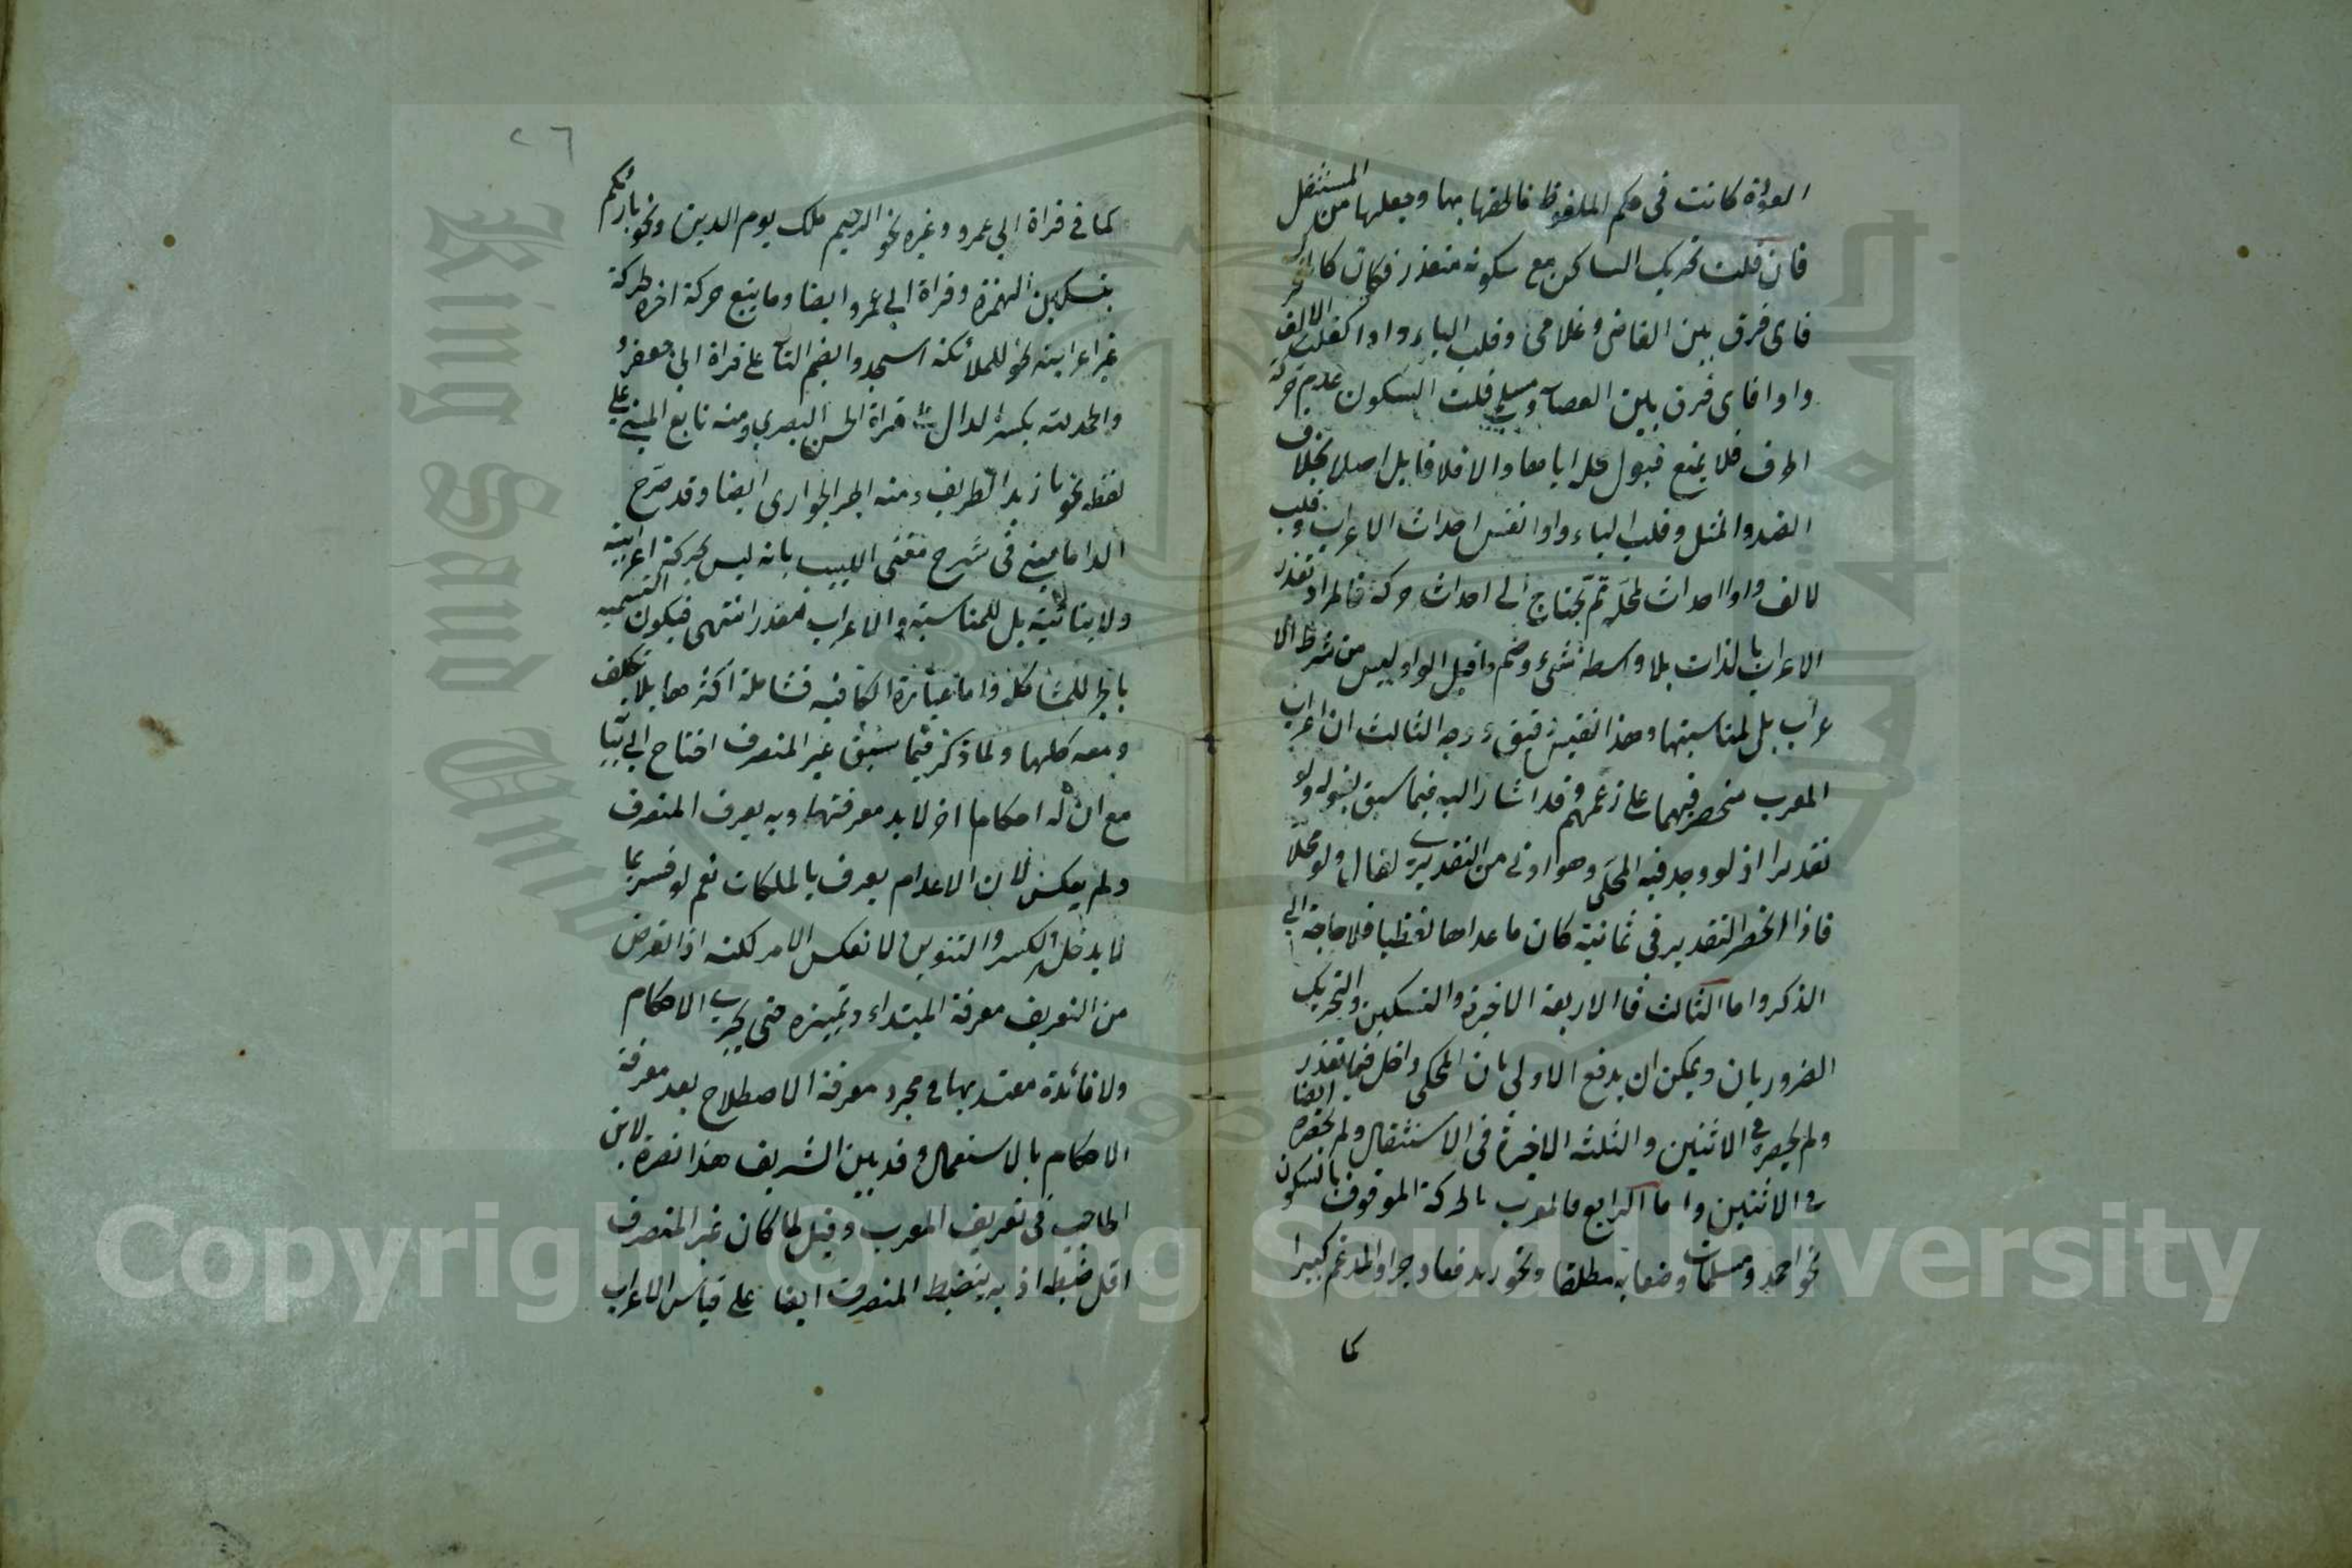 القوة كانت في حكم الملفوظ فالحقها بها وجعلها من المستثقل
فان قلت تحريك الساكن مع سكونه متعذر فكان كالف
فاى فرق بين القاضي وغلامى وقلب الياء واوا كقلب الالف
واوا فاى فرق بين العصا ومسلمي قلت السكون عدم حركة
الحرف فلا يمنع قبول محله اياها والالف لا قابل اصلا بخلاف
الضد والمثل وقلب الياء واوا نفس احداث الاعراب وقلب
الالف واوا احداث لمحله ثم يحتاج الى احداث حركة فالمراد تعذر
الاعراب بالذات بلا واسطة شىء وضم ما قبل الواو ليس من شرط الا
عراب بل لمناسبتها وهذا نفيس دقيق وجه الثالث ان اعراب
المعرب منحصر فيهما على زعمهم وقد اشار اليه فيما سبق بقوله ولو
تقديرا اذ لو وجد فيه المحلى وهو ادنى من التقديري لقال ولو محلا
فاذا انحصر التقدير في ثمانية كان ما عداها لفظيا فلا حاجة الى
الذكر واما الثالث فالاربعة الاخيرة والتسكين والتحريك
الضروريان ويمكن ان يدفع الاولى بان المحكى داخل فيما تعذر
ولم يحصره في الاثنين والثلثة الاخيرة في الاستثقال ولم يحصره ايضا
في الاثنين واما الرابع فالمعرب بالحركة الموقوف بالسكون
نحو احمد ومسلمات وضعا به مطلقا ونحو زيد رفعا وجرا والمدغم كبيرا
كما
٢٦
كما في قراة ابي عمرو وغيره نحو الرحيم ملك يوم الدين ونحو بارئكم
بتسكين الهمزة وقراة ابي عمرو ايضا وما يتبع حركة اخره لحركة
غير اعرابية نحو للملائكة اسجدوا بضم التاء على قراة ابي جعفر و
والحمد لله بكسر الدال قراة الحسن البصري ومنه تابع المبني على
لفظه نحو يا زيد الظريف ومنه الجر الجوارى ايضا وقد صرح
الدمامينى في شرح مغنى اللبيب بانه ليس بحركة اعرابية
ولا بنائية بل للمناسبة والاعراب مقدر انتهى فيكون التسمية
بالجر للمشاكلة واما عبارة الكافية فشاملة اكثرها بلا تكلف
ومعه كلها ولما ذكر فيما سبق غير المنصرف احتاج الى بيانه
مع ان له احكاما اخر لا بد معرفتها وبه يعرف المنصرف
ولم يعكس لان الاعدام يعرف بالملكات نعم لو فسر بما
لا يدخل الكسر والتنوين لانعكس الامر لكنه اذ الغرض
من التعريف معرفة المبتداء وتميزه حتى يجرى الاحكام
ولا فائدة معتد بها في مجرد معرفة الاصطلاح بعد معرفة
الاحكام بالاستعمال وقد بين الشريف هذا نصرة لابن
الحاجب في تعريف المعرب وقيل لما كان غير المنصرف
اقل ضبطه اذ به ينضبط المنصرف ايضا على قياس الاعراب
Copyright © King Saud University